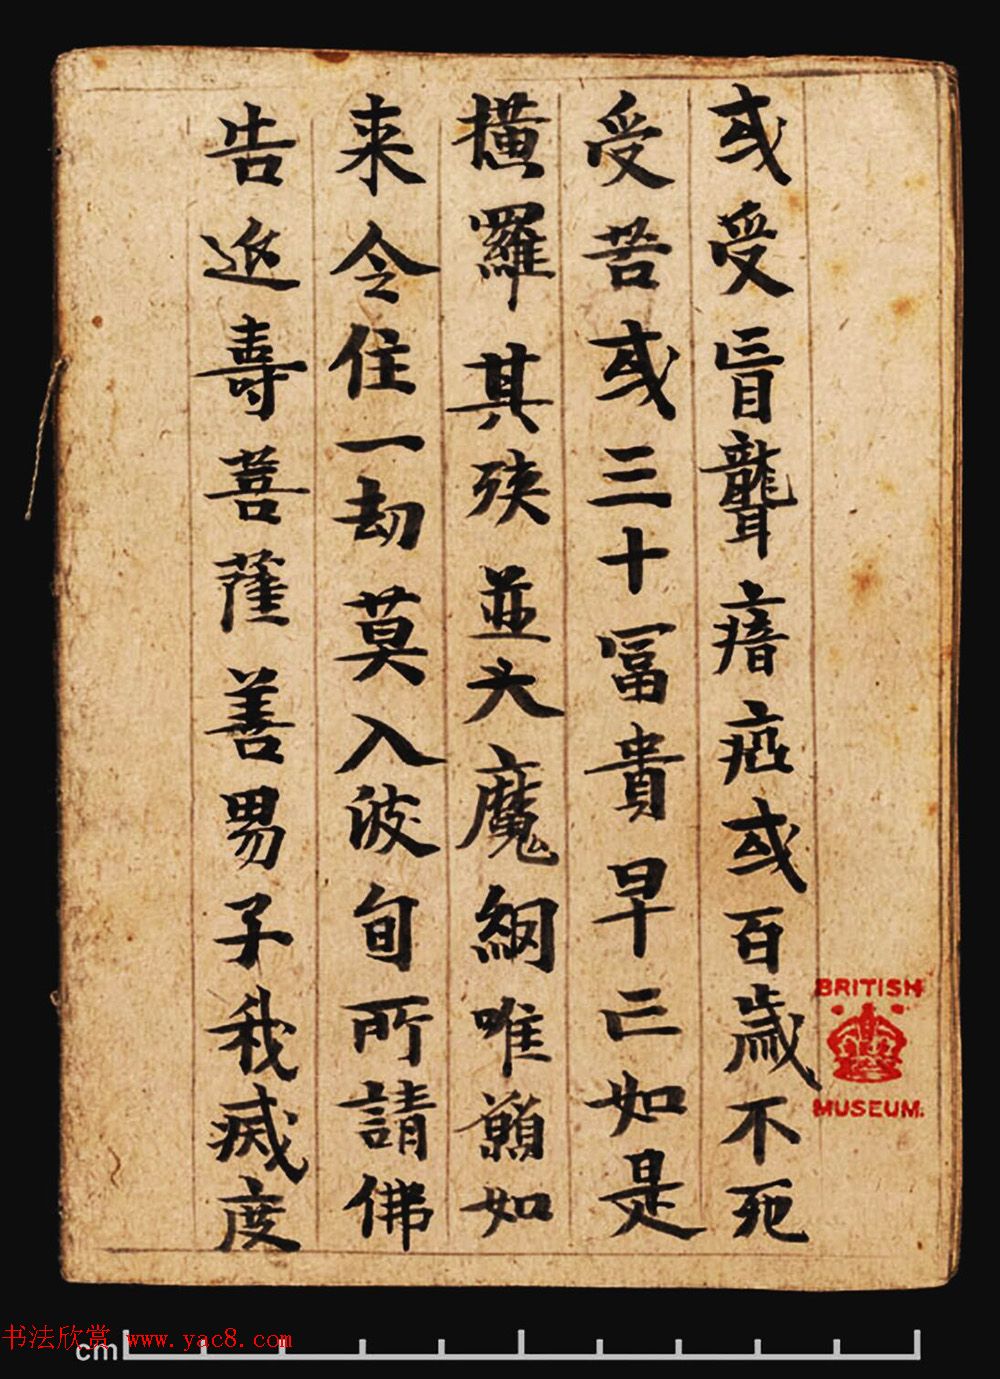 或受盲聾瘖瘂或百歲不死
受苦或三十冨貴早亡如是
橫羅其殃並头魔網唯願如
来令住一劫莫入波旬所請佛
告延壽菩薩善男子我滅度
BRITISH
MUSEUM.
书法欣赏 www.yac8.com
cm